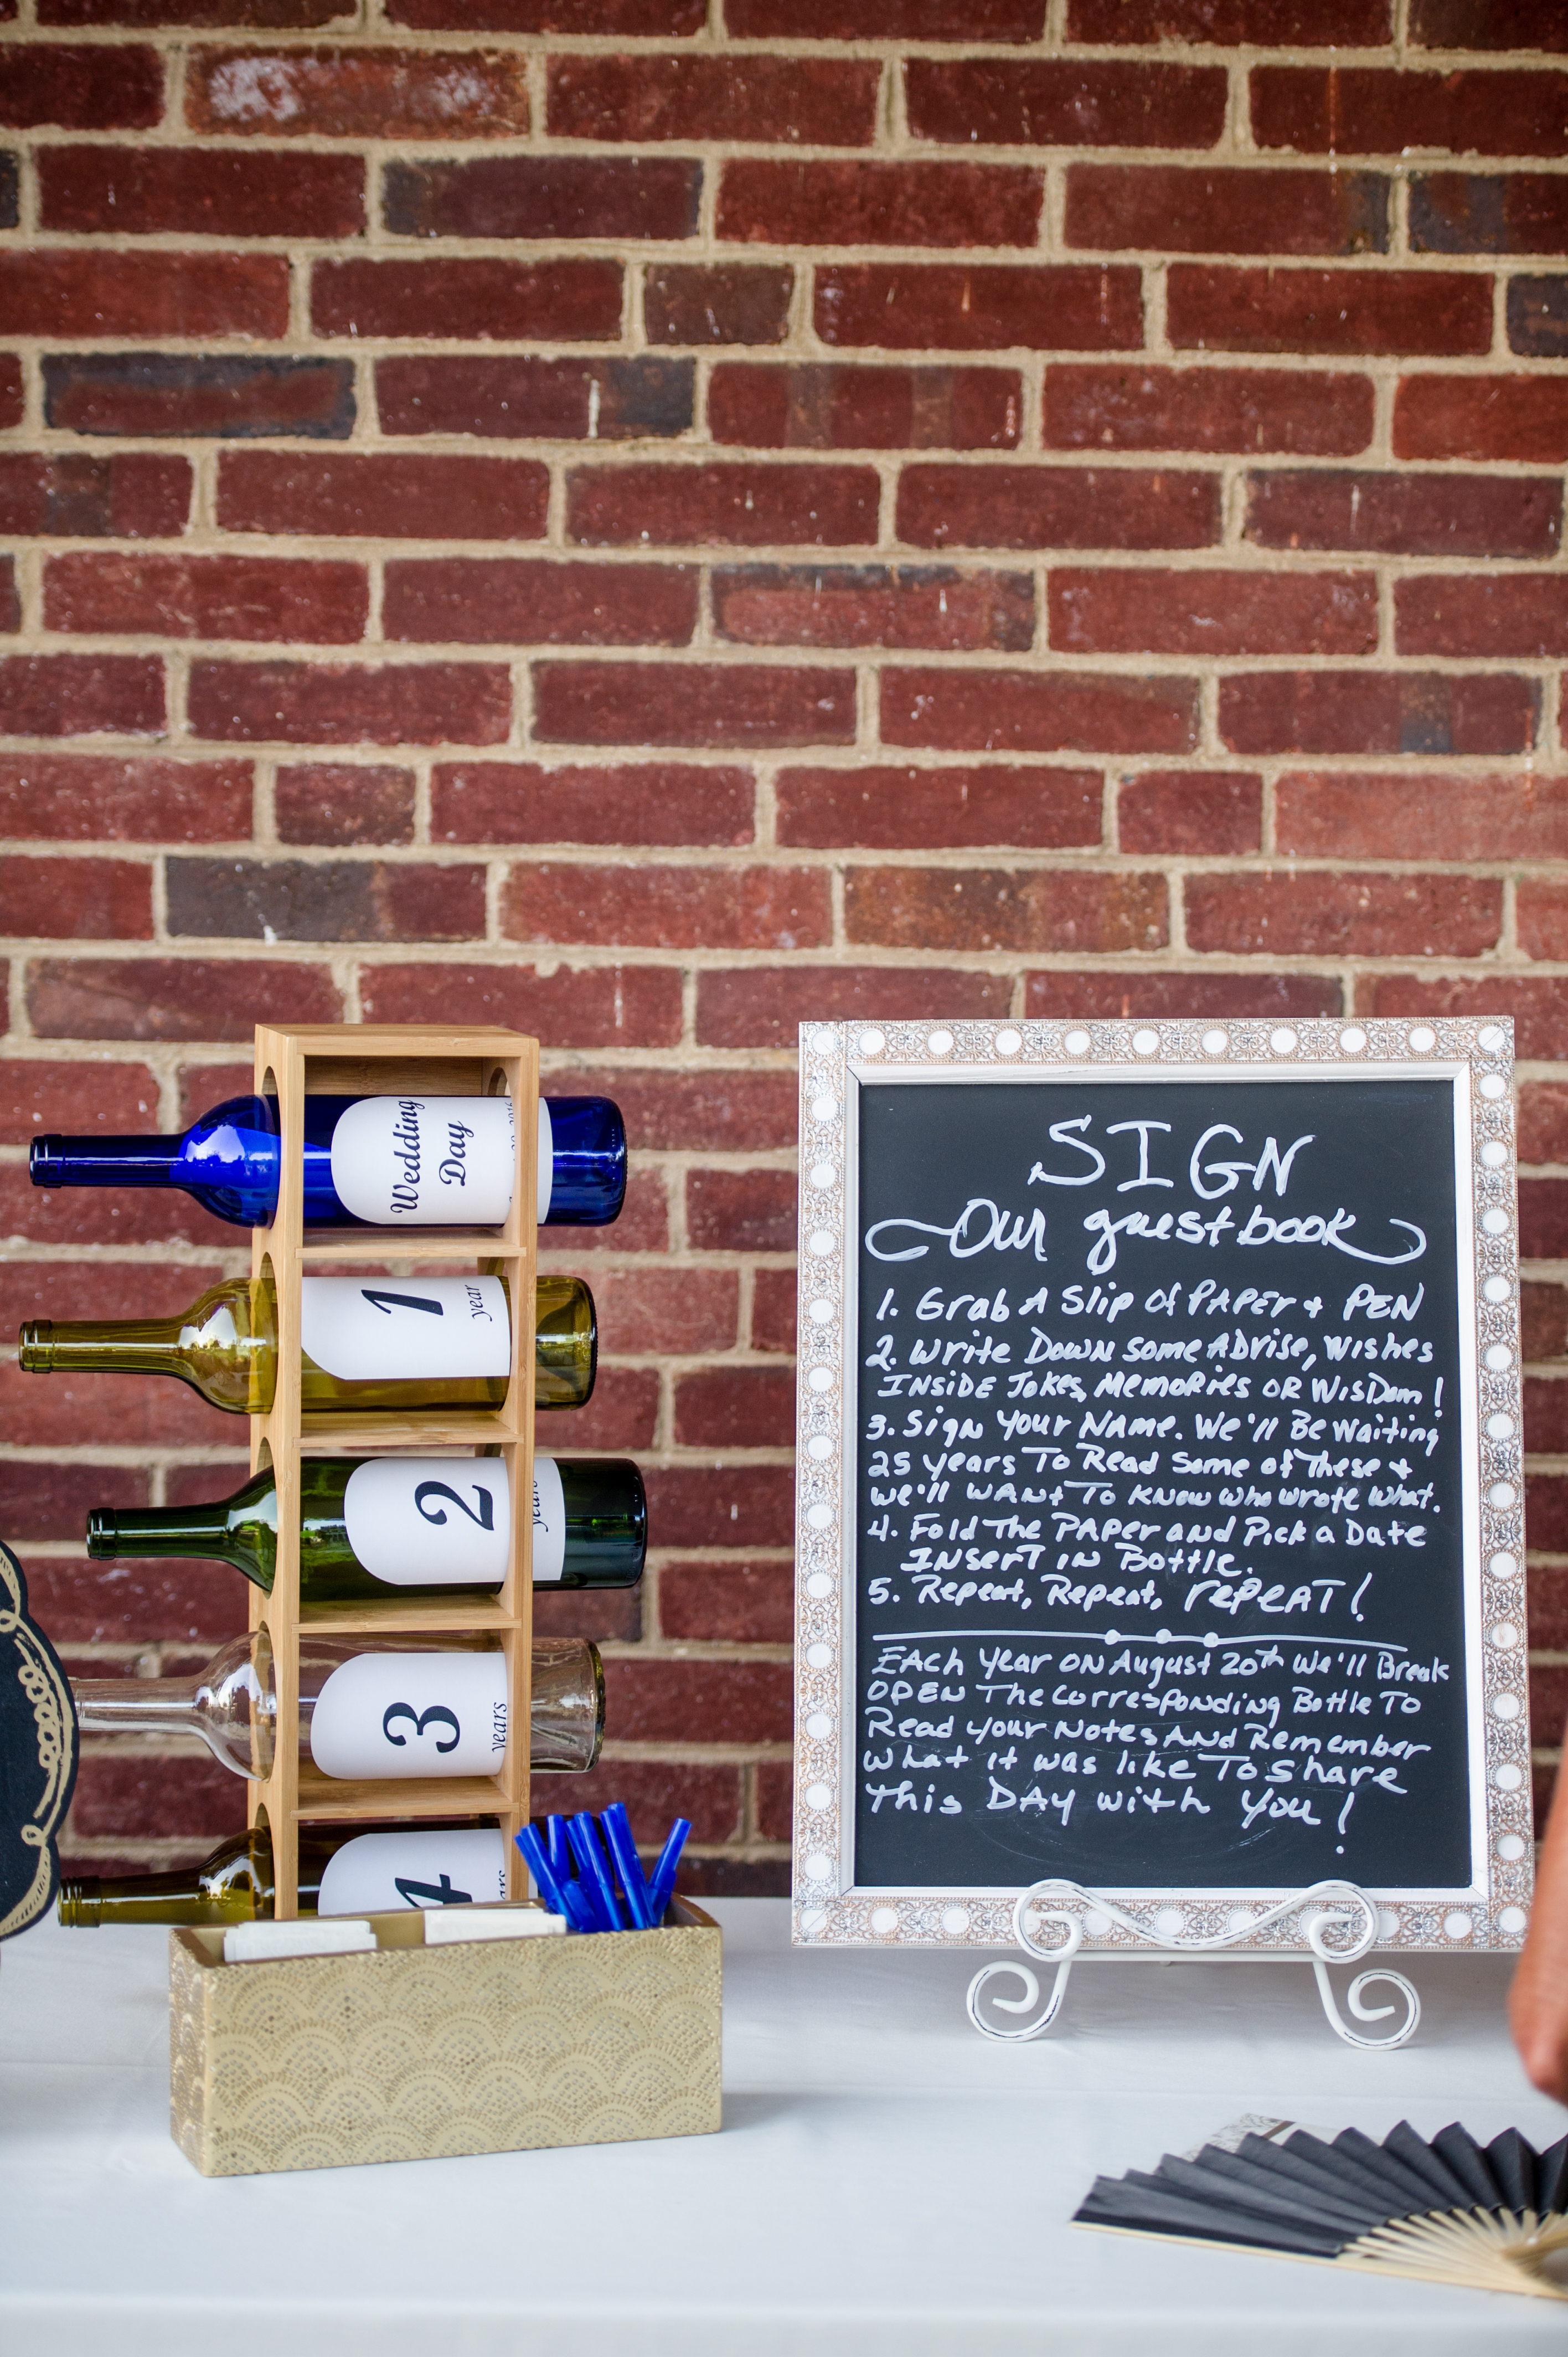 Wedding
Day
1
year
2
years
3
years
4
SIGN
Our guestbook
1. Grab A Slip of PAPER + PEN
2. Write Down some ADvise, Wishes
INSIDE Jokes, MEMORIES OR WISDom!
3. Sign Your Name. We'll Be Waiting
25 years To Read Some of These +
we'll WANt To Know who wrote what.
4. Fold The PAPER and Pick a Date
INSERT in Bottle.
5. Repeat, Repeat, repEAT!
EACH Year ON August 20th We'll Break
OPEN The Corresponding Bottle To
Read your Notes AND Remember
What it was like To share
This DAY with You!